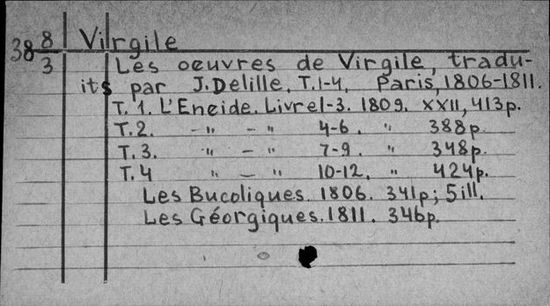 38 8/3 Virgile
Les oeuvres de Virgile, tradu-
its par J. Delille. T. 1-4. Paris, 1806-1811.
T. 1. L'Eneide. Livre 1-3. 1809. XXII, 413p.
T. 2. -"- -" 4-6. " 388p.
T. 3. -"- -" 7-9. " 348p.
T. 4 " - " 10-12. " 424p.
Les Bucoliques. 1806. 341p; 5 ill.
Les Géorgiques. 1811. 346p.